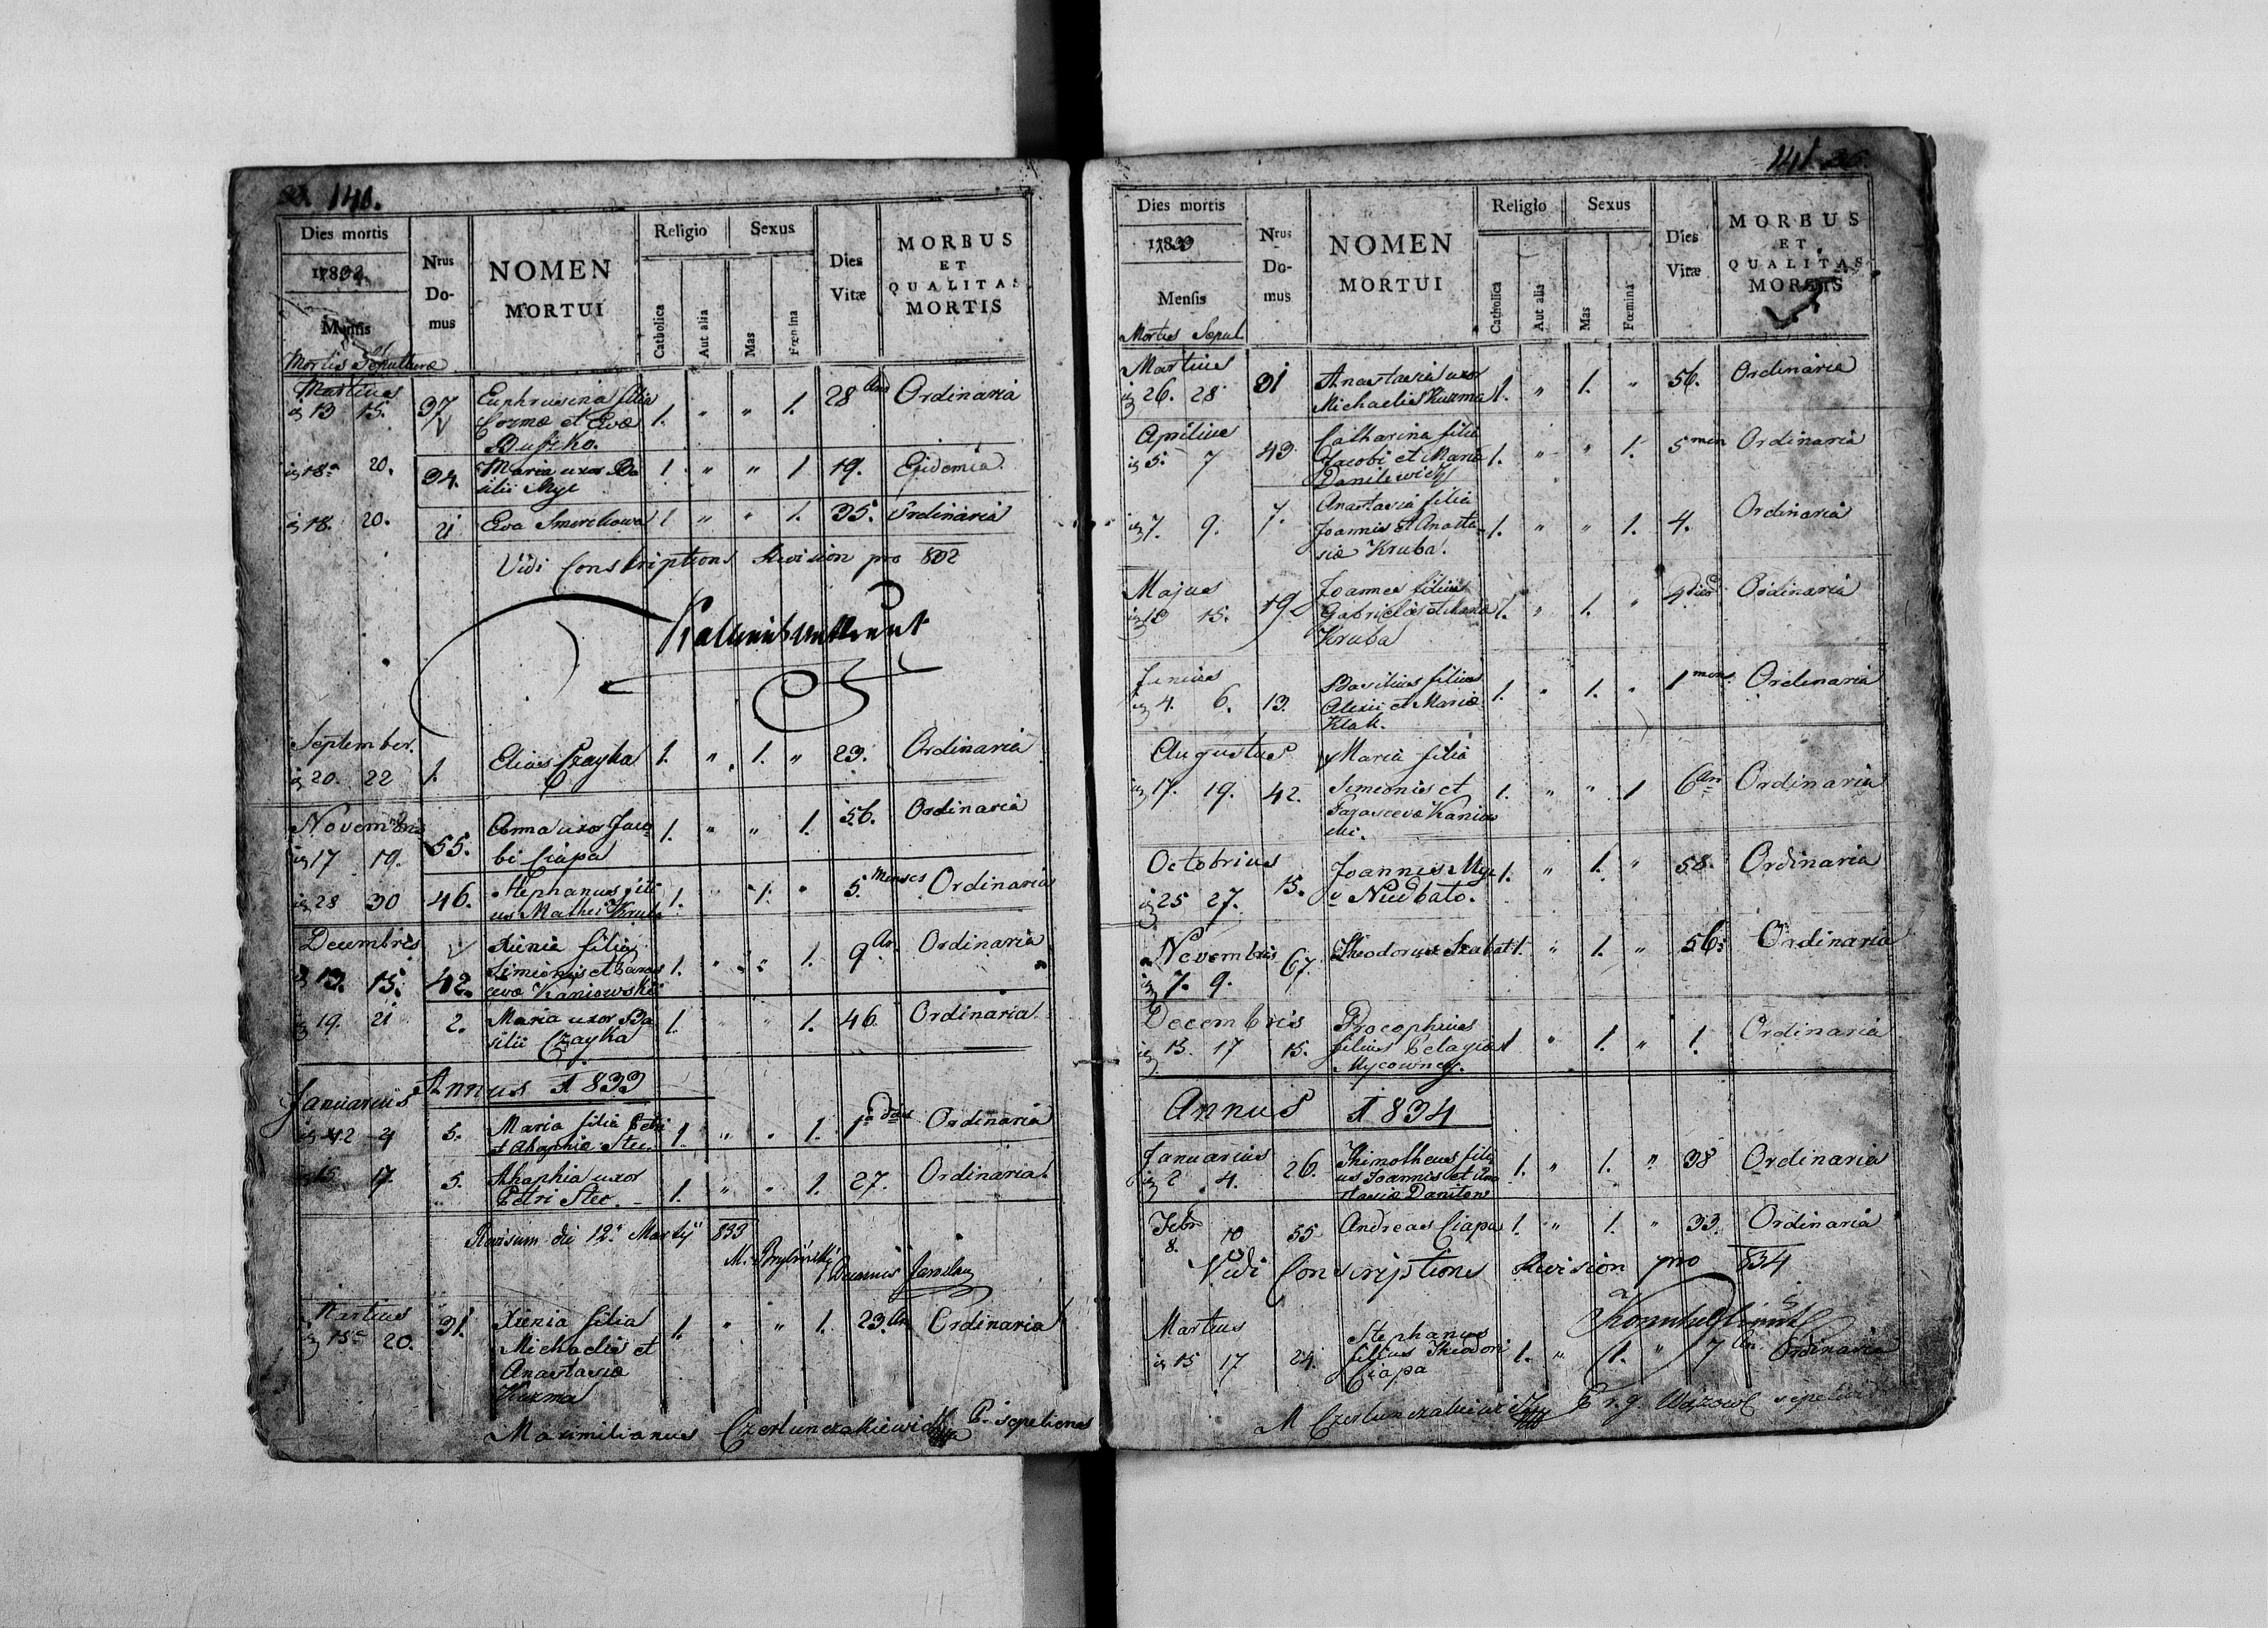 140.
Dies mortis
1832.
Mensis
Mortis Sepulturæ
Nrus Do- mus
NOMEN MORTUI
Religio
Catholica
Aut alia
Sexus
Mas
Fœmina
Dies Vitæ
MORBUS ET QUALITAS MORTIS
Martius
13 15. 37 Euphrosina filia 1. " " 1. 28 Ordinaria
Cozmæ et Evæ
Buszko.
18 20. 34. Maria uxor Ba 1 " " 1 19. Epidemia.
silii Myc
18. 20. 21 Eva Smerekowa 1 " " 1. 35. Ordinaria
Vidi Conskriptions Revision pro 832
September.
20. 22 1. Elias Czayka 1. " 1. " 23. Ordinaria
Novembris
17 19. 55. Anna uxor Jaco 1. " " 1. 56. Ordinaria
bi Ciapa
28 30 46. Stephanus fili 1. " 1. " 5. Menses Ordinaria
us Mathei Kruba
Decembris
13. 15. 42. Xienia filia 1. " " 1. 9 An. Ordinaria
Simeonis et Paras
cevæ Kaniowski
19. 21 2. Maria uxor Ba 1. " " 1. 46. Ordinaria.
silii Czayka
Annus 1833
Januarius
2 4 5. Maria filia Petri 1. " " 1. 1 dies Ordinaria
et Ahaphiæ Stec.
15 17. 5. Ahaphia uxor 1. " " 1. 27. Ordinaria.
Petri Stec.
Revisum die 12 Martij 833
M.
Martius
15 20. 31. Xienia filia 1. " " 1. 23. An Ordinaria
Michaelis et
Anastasiæ
Kuzma
Maximilianus Czerlunczakiewicz P. sepeliones
141.
Dies mortis
1833
Mensis
Mortis Sepul.
Nrus Do- mus
NOMEN MORTUI
Religio
Catholica
Aut alia
Sexus
Mas
Fœmina
Dies Vitæ
MORBUS ET QUALITAS MORTIS
Martius
26. 28 31 Anastasia uxor 1. " 1. " 56. Ordinaria
Michaelis Kuzma
Aprilius
5. 7 43 Catharina filia 1. " " 1. 5 men Ordinaria
Jacobi et Maria
Danilewicz
7. 9. 7. Anastasia filia 1. " " 1. 4. Ordinaria
Joannis et Anasta-
siæ Kruba.
Majus
13 15. 19. Joannes filius 1. " 1. " 9 dies Ordinaria
Gabrielis et Maria
Kruba
Junius
4. 6. 13. Basilius filius 1. " 1. " 1 mens. Ordinaria
Alexii et Mariæ
Klak.
Augustus
17. 19. 42. Maria filia 1. " " 1 6 An Ordinaria
Simeonis et
Parascevæ Kaniow
ski.
Octobrius
25 27. 15. Joannes Myc 1. " 1. " 58. Ordinaria
Novembris
7. 9. 67. Theodorus Szabat 1. " 1. " 56. Ordinaria
Decembris
15. 17 15. Procophius 1 " 1. " 1. Ordinaria
filius Pelagiæ
Mycowney.
Annus 1834
Januarius
2 4. 26. Thimotheus fili 1. " 1. " 38 Ordinaria
us Joannis et Ana
stasiæ Danilow
Febr
8. 10 55 Andreas Ciapa 1. " 1. " 33. Ordinaria
Vidi Conscriptions Revision pro 834
Martius
15 17 24. Stephanus 1. " 1. " 7 An. Ordinaria
filius Theodori
Ciapa
M Czerlunczakiewicz P. r. g. sepelivi